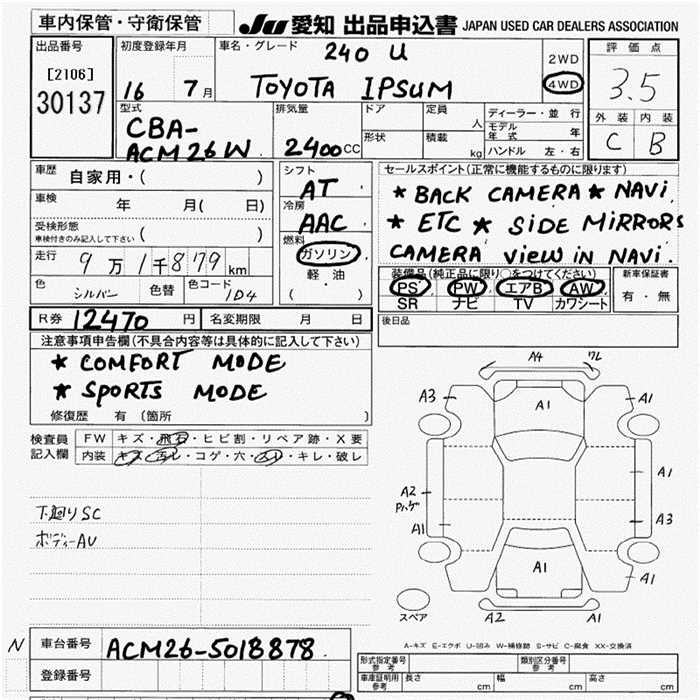 車内保管・守衛保管
JU 愛知 出品申込書 JAPAN USED CAR DEALERS ASSOCIATION
出品番号 初度登録年月 車名・グレード 240 U 2WD 評価点
[2106] 4WD
30137 16 7月 TOYOTA IPSUM 3.5
型式 排気量 ドア 定員 人 ディーラー・並行 外装 内装
CBA- モデル年式 年 C B
ACM26W 2400CC 形状 積載 kg ハンドル 左・右
車歴 自家用・( ) シフト AT セールスポイント(正常に機能するものに限ります)
車検 年 月( 日) 冷房 AAC ★ BACK CAMERA ★ NAVI
受検形態 ( ) ★ ETC ★ SIDE MIRRORS
車検付きのみ記入して下さい 燃料 ガソリン CAMERA VIEW IN NAVI.
走行 9万1千879km 軽油 装備品(純正品に限り○をつけてください) 新車保証書
色 シルバー 色替 色コード 1D4 ( ・ ) PS PW エアB AW 有・無
SR ナビ TV カワシート
R券 12470円 名変期限 月 日 後日品
注意事項申告欄(不具合内容等は具体的に記入して下さい)
★ COMFORT MODE
★ SPORTS MODE
修復歴 有 (箇所 )
検査員 FW キズ・飛石・ヒビ割・リペア跡・X要
記入欄 内装 キズ・汚レ・コゲ・穴・スレ・キレ・破レ
下廻りSC
ボディーAU
A4
A3 A1 A1
A1
A2 A3
A1
A1 A1
スペア A2 A1
A-キズ E-エクボ U-凹み W-補修跡 S-サビ C-腐食 XX-交換済
N 車台番号 ACM26-5018878.
登録番号
形式指定番号 参考 類別区分番号 参考
車庫証明用 参考 長さ cm 幅 cm 高さ cm